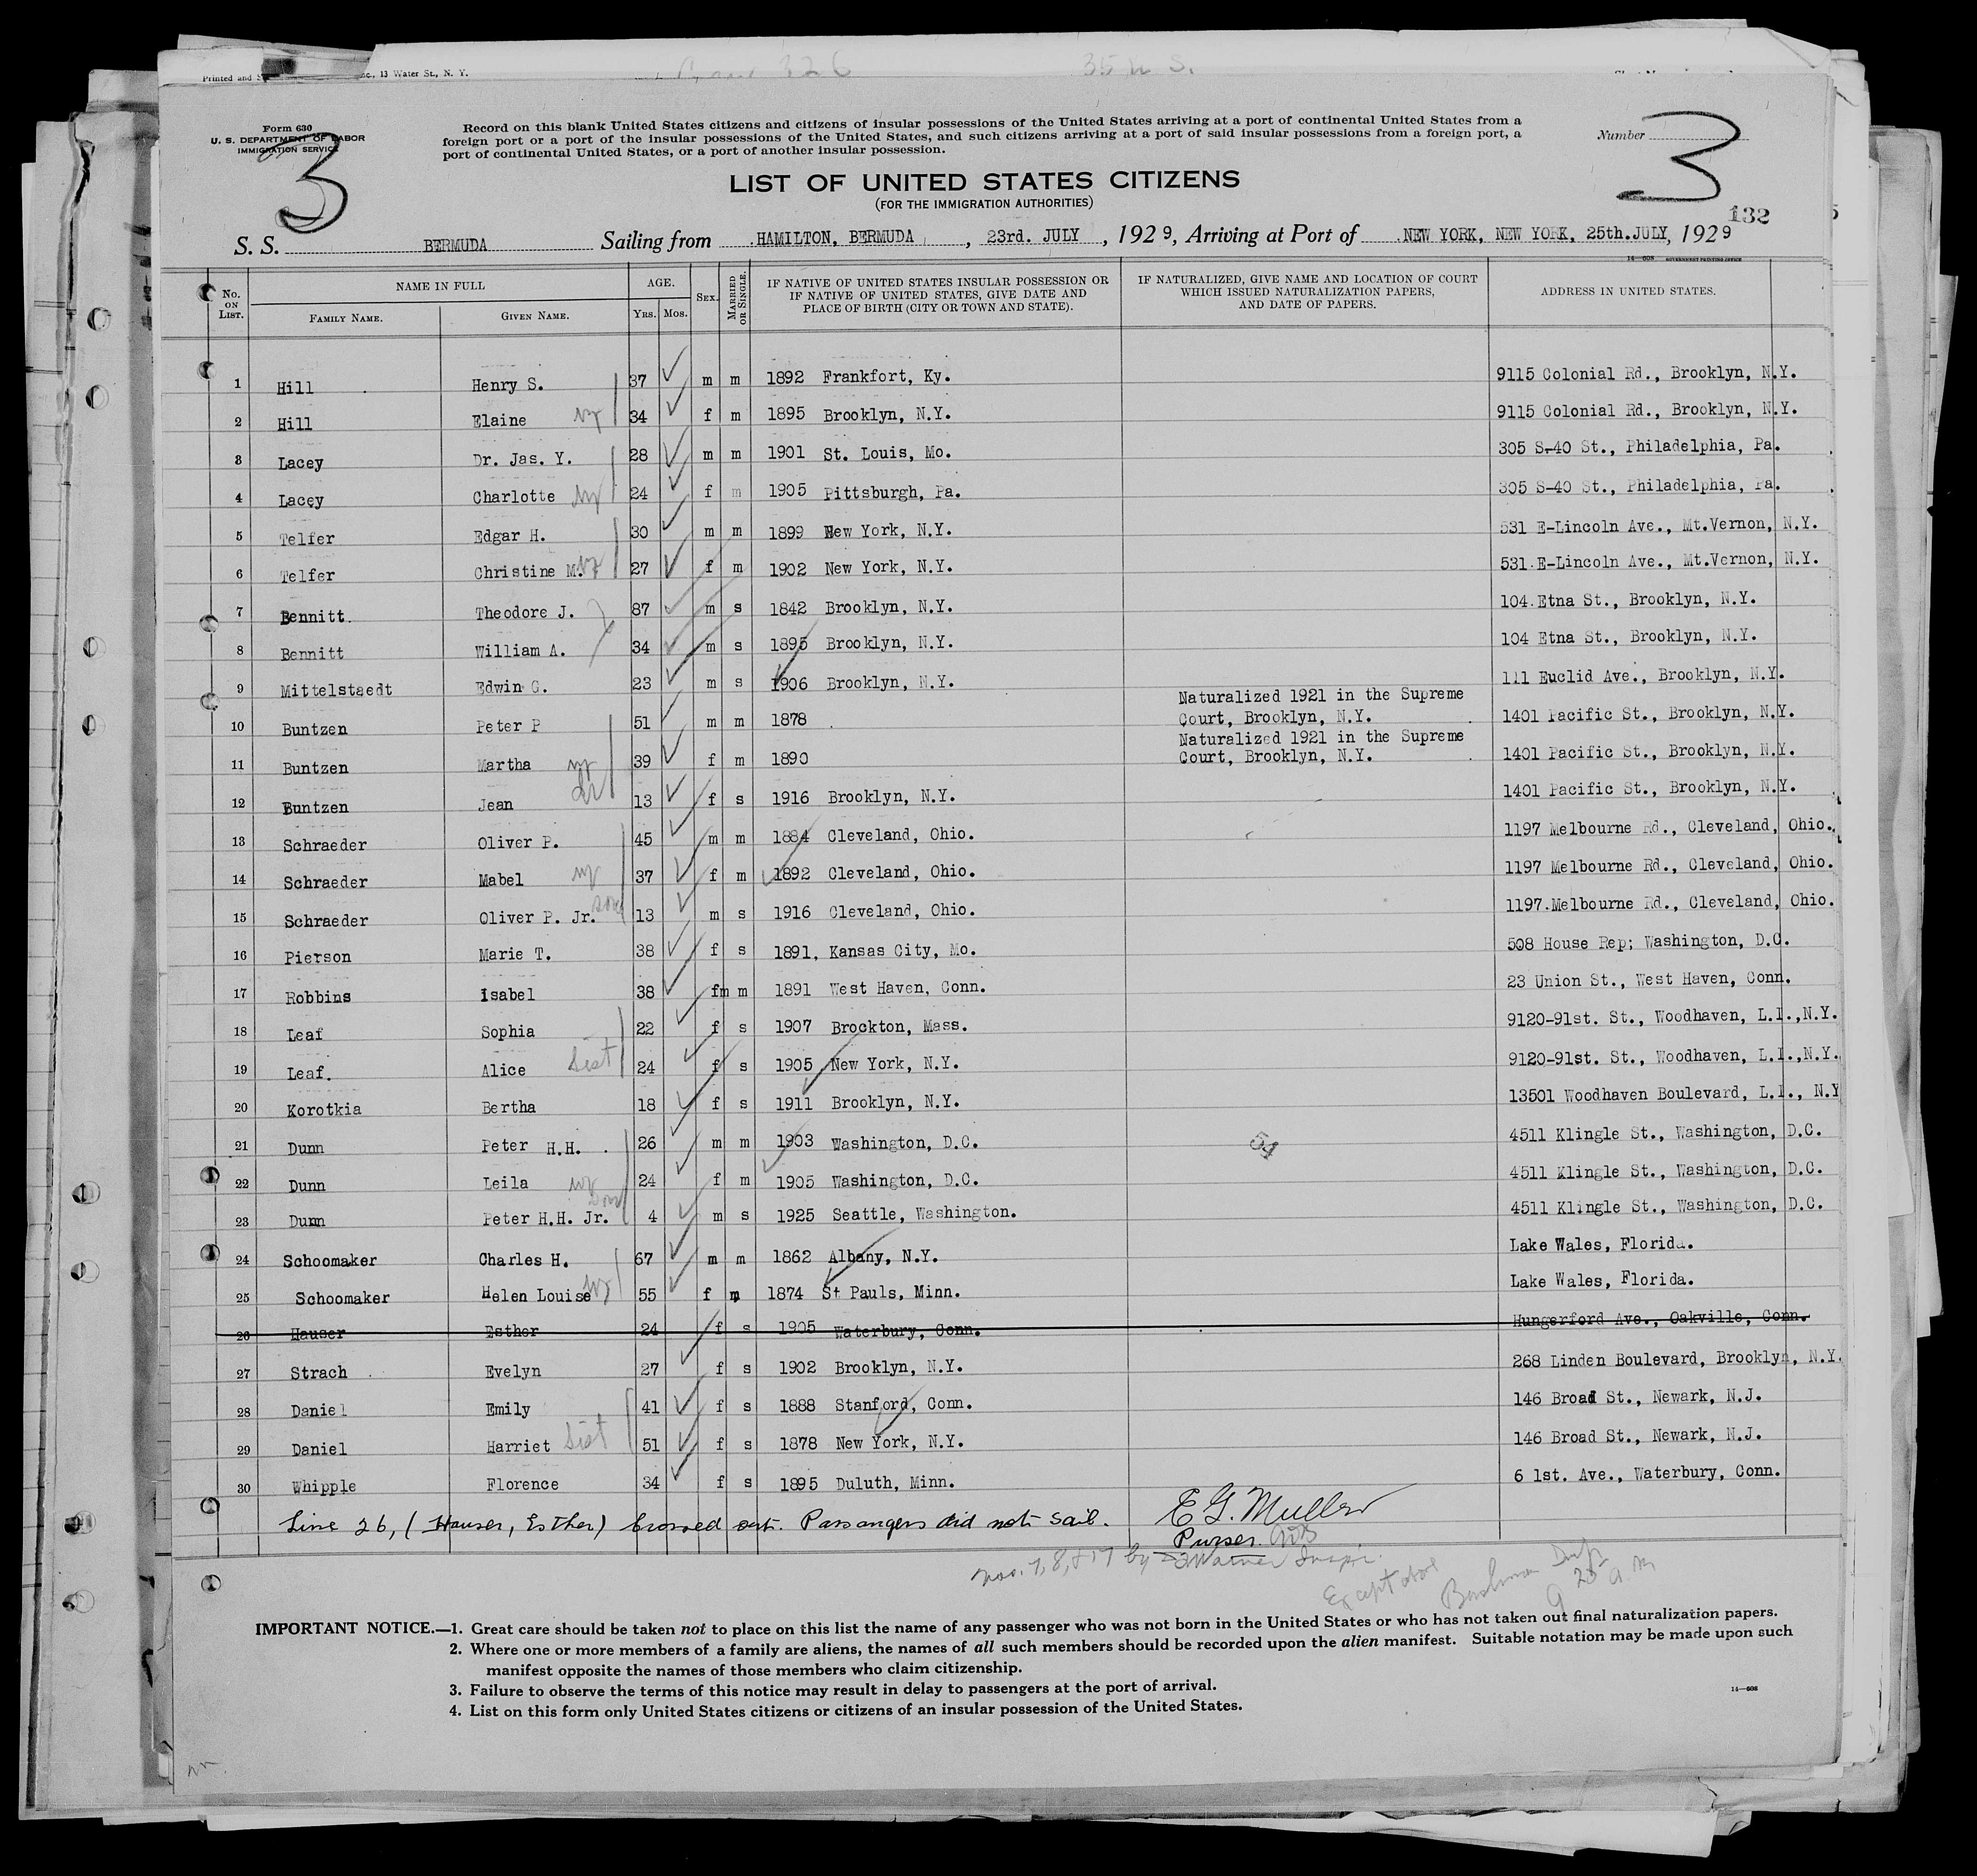 Printed and S nc., 13 Water St., N. Y.
326 35 U S.
Form 630
U. S. DEPARTMENT OF LABOR
IMMIGRATION SERVICE
3
Record on this blank United States citizens and citizens of insular possessions of the United States arriving at a port of continental United States from a
foreign port or a port of the insular possessions of the United States, and such citizens arriving at a port of said insular possessions from a foreign port, a
port of continental United States, or a port of another insular possession.
Number
3
LIST OF UNITED STATES CITIZENS
(FOR THE IMMIGRATION AUTHORITIES)
132
S. S. BERMUDA Sailing from HAMILTON, BERMUDA, 23rd. JULY, 1929, Arriving at Port of NEW YORK, NEW YORK, 25th.JULY, 1929
14—608 GOVERNMENT PRINTING OFFICE
No. ON LIST. NAME IN FULL FAMILY NAME. GIVEN NAME. AGE. YRS. MOS. SEX. MARRIED OR SINGLE. IF NATIVE OF UNITED STATES INSULAR POSSESSION OR IF NATIVE OF UNITED STATES, GIVE DATE AND PLACE OF BIRTH (CITY OR TOWN AND STATE). IF NATURALIZED, GIVE NAME AND LOCATION OF COURT WHICH ISSUED NATURALIZATION PAPERS, AND DATE OF PAPERS. ADDRESS IN UNITED STATES.
1 Hill Henry S. 37 m m 1892 Frankfort, Ky. 9115 Colonial Rd., Brooklyn, N.Y.
2 Hill Elaine 34 f m 1895 Brooklyn, N.Y. 9115 Colonial Rd., Brooklyn, N.Y.
3 Lacey Dr. Jas. Y. 28 m m 1901 St. Louis, Mo. 305 S-40 St., Philadelphia, Pa.
4 Lacey Charlotte 24 f m 1905 Pittsburgh, Pa. 305 S-40 St., Philadelphia, Pa.
5 Telfer Edgar H. 30 m m 1899 New York, N.Y. 531 E-Lincoln Ave., Mt.Vernon, N.Y.
6 Telfer Christine M. 27 f m 1902 New York, N.Y. 531 E-Lincoln Ave., Mt.Vernon, N.Y.
7 Bennitt Theodore J. 87 m s 1842 Brooklyn, N.Y. 104 Etna St., Brooklyn, N.Y.
8 Bennitt William A. 34 m s 1895 Brooklyn, N.Y. 104 Etna St., Brooklyn, N.Y.
9 Mittelstaedt Edwin G. 23 m s 1906 Brooklyn, N.Y. 111 Euclid Ave., Brooklyn, N.Y.
10 Buntzen Peter P 51 m m 1878 Naturalized 1921 in the Supreme Court, Brooklyn, N.Y. 1401 Pacific St., Brooklyn, N.Y.
11 Buntzen Martha 39 f m 1890 Naturalized 1921 in the Supreme Court, Brooklyn, N.Y. 1401 Pacific St., Brooklyn, N.Y.
12 Buntzen Jean 13 f s 1916 Brooklyn, N.Y. 1401 Pacific St., Brooklyn, N.Y.
13 Schraeder Oliver P. 45 m m 1884 Cleveland, Ohio. 1197 Melbourne Rd., Cleveland, Ohio.
14 Schraeder Mabel 37 f m 1892 Cleveland, Ohio. 1197 Melbourne Rd., Cleveland, Ohio.
15 Schraeder Oliver P. Jr. son 13 m s 1916 Cleveland, Ohio. 1197.Melbourne Rd., Cleveland, Ohio.
16 Pierson Marie T. 38 f s 1891, Kansas City, Mo. 508 House Rep; Washington, D.C.
17 Robbins Isabel 38 fm m 1891 West Haven, Conn. 23 Union St., West Haven, Conn.
18 Leaf Sophia 22 f s 1907 Brockton, Mass. 9120-91st. St., Woodhaven, L.I.,N.Y.
19 Leaf. Alice Sist 24 f s 1905 New York, N.Y. 9120-91st. St., Woodhaven, L.I.,N.Y.
20 Korotkia Bertha 18 f s 1911 Brooklyn, N.Y. 13501 Woodhaven Boulevard, L.I., N.Y
21 Dunn Peter H.H. 26 m m 1903 Washington, D.C. 54 4511 Klingle St., Washington, D.C.
22 Dunn Leila 24 f m 1905 Washington, D.C. 4511 Klingle St., Washington, D.C.
23 Dunn Peter H.H. Jr. son 4 m s 1925 Seattle, Washington. 4511 Klingle St., Washington, D.C.
24 Schoomaker Charles H. 67 m m 1862 Albany, N.Y. Lake Wales, Florida.
25 Schoomaker Helen Louise 55 f m 1874 St Pauls, Minn. Lake Wales, Florida.
26 Hauser Esther 24 f s 1905 Waterbury, Conn. Hungerford Ave., Oakville, Conn.
27 Strach Evelyn 27 f s 1902 Brooklyn, N.Y. 268 Linden Boulevard, Brooklyn, N.Y.
28 Daniel Emily 41 f s 1888 Stanford, Conn. 146 Broad St., Newark, N.J.
29 Daniel Harriet Sist 51 f s 1878 New York, N.Y. 146 Broad St., Newark, N.J.
30 Whipple Florence 34 f s 1895 Duluth, Minn. 6 1st. Ave., Waterbury, Conn.
Line 26, (Hauser, Esther) crossed out. Passangers did not sail. E G. Muller
Purser.
nos. 7, 8, & 17 by Inspr.
Except above
9 20 a m
IMPORTANT NOTICE.—1. Great care should be taken not to place on this list the name of any passenger who was not born in the United States or who has not taken out final naturalization papers.
2. Where one or more members of a family are aliens, the names of all such members should be recorded upon the alien manifest. Suitable notation may be made upon such
manifest opposite the names of those members who claim citizenship.
3. Failure to observe the terms of this notice may result in delay to passengers at the port of arrival.
4. List on this form only United States citizens or citizens of an insular possession of the United States.
14—608